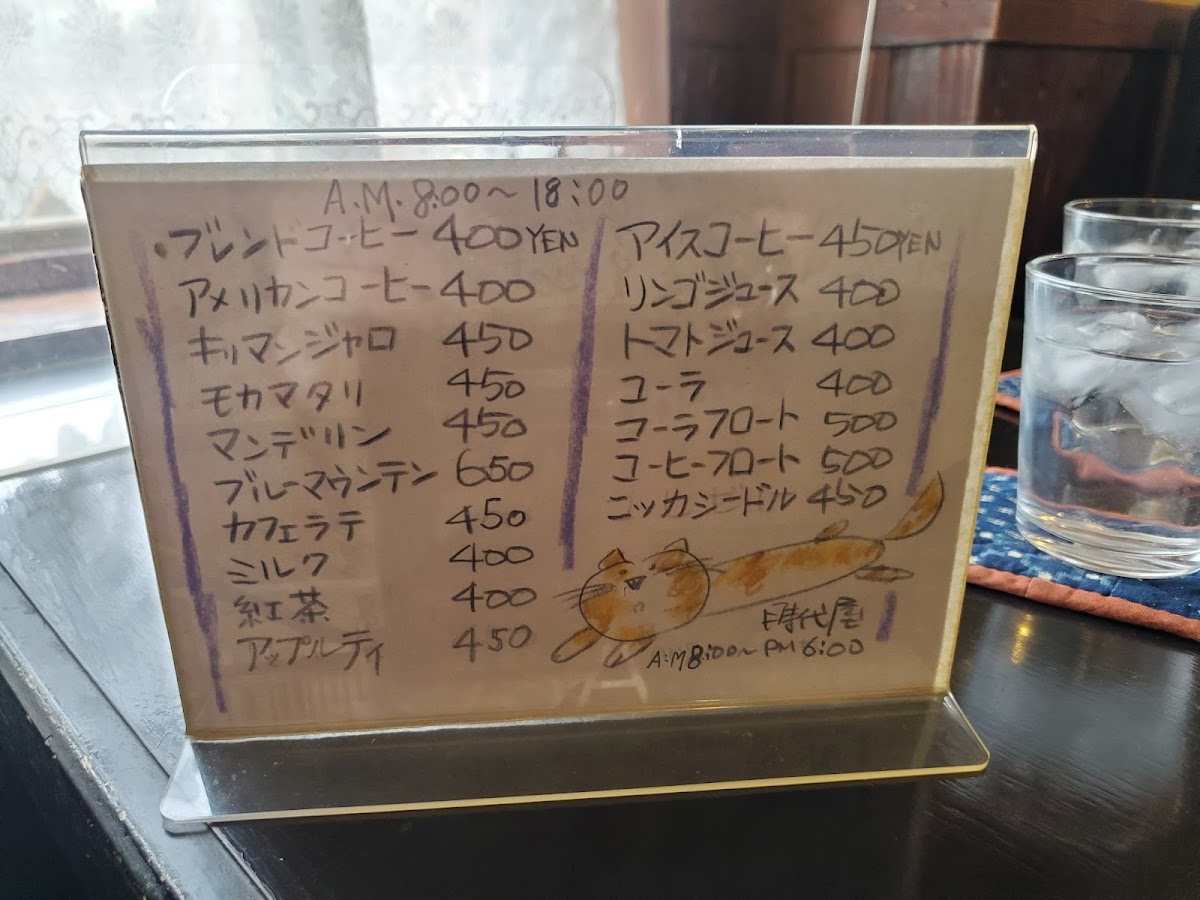 A.M. 8:00〜18:00
・ブレンドコーヒー 400YEN
アメリカンコーヒー 400
キリマンジャロ 450
モカマタリ 450
マンデリン 450
ブルーマウンテン 650
カフェラテ 450
ミルク 400
紅茶 400
アップルティ 450
アイスコーヒー 450YEN
リンゴジュース 400
トマトジュース 400
コーラ 400
コーラフロート 500
コーヒーフロート 500
ニッカシードル 450
時代屋
A:M8:00〜PM6:00